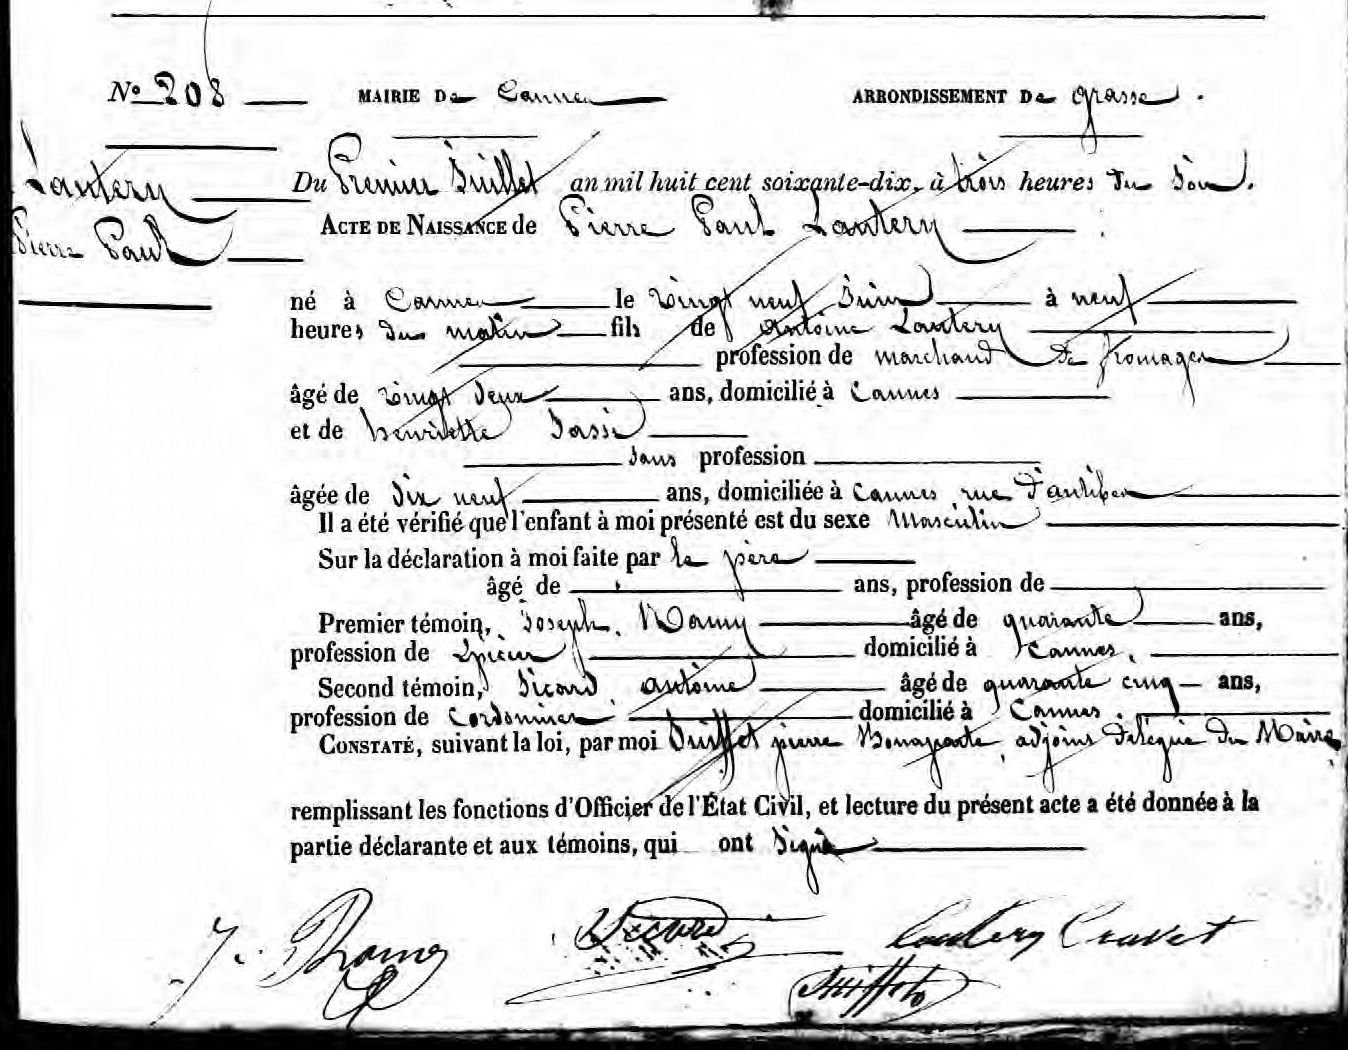 N° 208 MAIRIE De Cannes ARRONDISSEMENT De Grasse.
Lantery
Pierre Paul
Du Premier Juillet an mil huit cent soixante-dix, à trois heures du Soir.
ACTE DE NAISSANCE de Pierre Paul Lantery
né à Cannes le vingt neuf Juin à neuf
heures du matin fils de Antoine Lantery
profession de marchand de fromages
âgé de vingt deux ans, domicilié à Cannes
et de henriette
sans profession
âgée de dix neuf ans, domiciliée à Cannes rue d'antibes
Il a été vérifié que l'enfant à moi présenté est du sexe Masculin
Sur la déclaration à moi faite par le père
âgé de ans, profession de
Premier témoin, Joseph âgé de quarante ans,
profession de Epicier domicilié à Cannes.
Second témoin, Sicard antoine âgé de quarante cinq ans,
profession de Cordonnier domicilié à Cannes
CONSTATÉ, suivant la loi, par moi pierre Bonaparte, adjoint délégué du Maire
remplissant les fonctions d'Officier de l'État Civil, et lecture du présent acte a été donnée à la
partie déclarante et aux témoins, qui ont Signé
J. Sicard Lantery